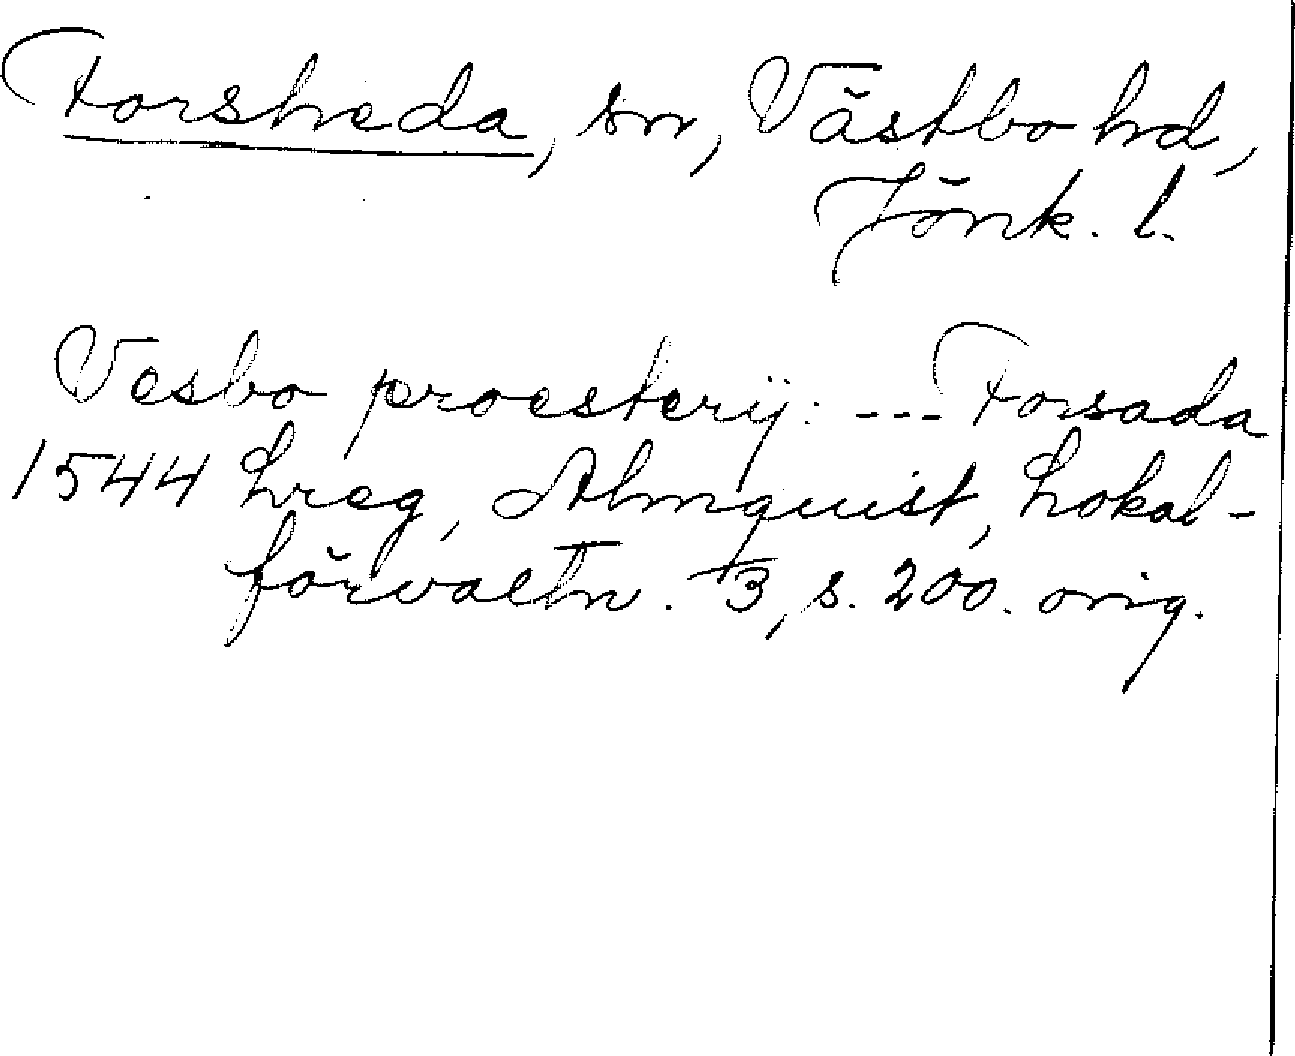 Forsheda, sn, Västbo hd,
Jönk. l.
Vesbo proesterij: --- Forsada
1544 Lreg, Almquist, Lokal-
förvaltn. 3, s. 200. orig.